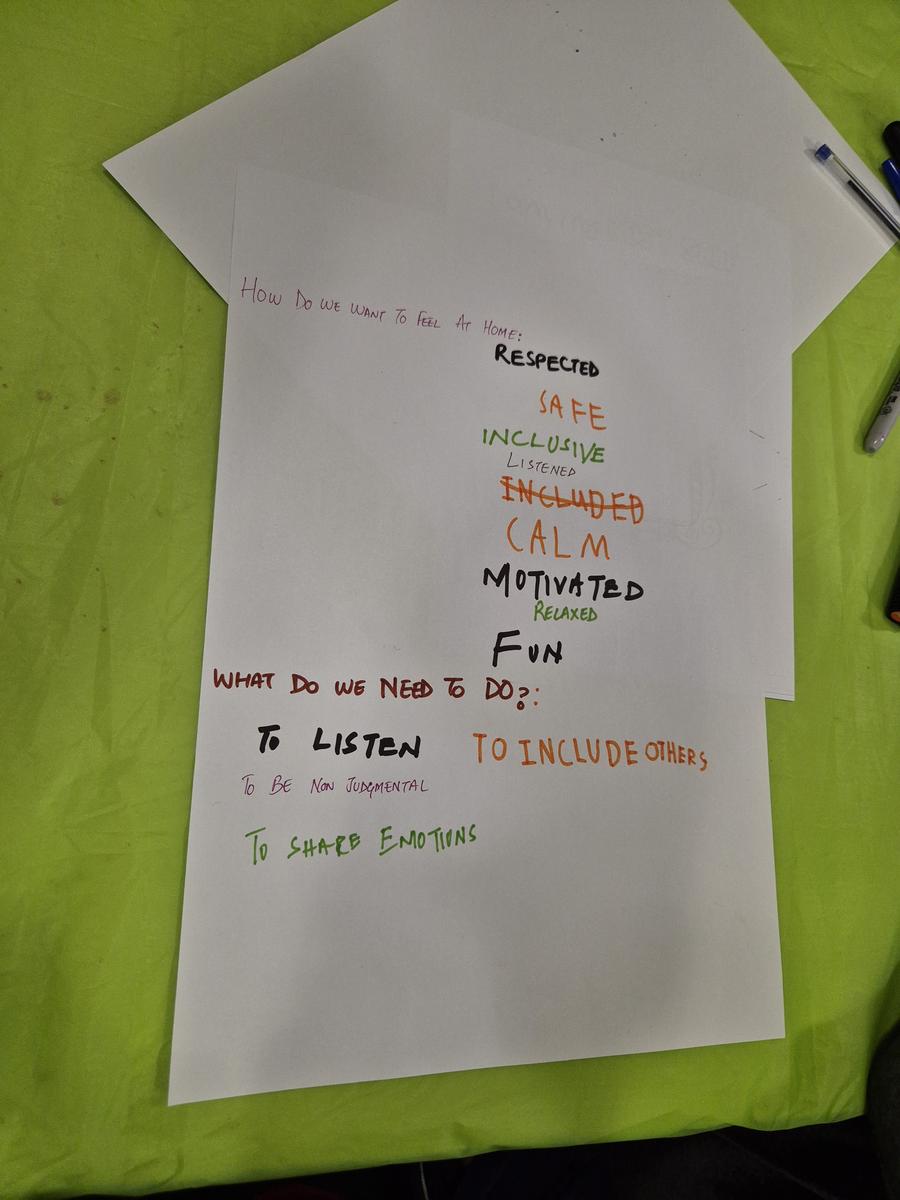 How Do we want To Feel At Home:
RESPECTED
SAFE
INCLUSIVE
LISTENED
INCLUDED
CALM
MOTIVATED
RELAXED
FUN
WHAT DO WE NEED TO DO?:
To LISTEN
TO INCLUDE OTHERS
To BE NON JUDGMENTAL
To SHARE EMOTIONS